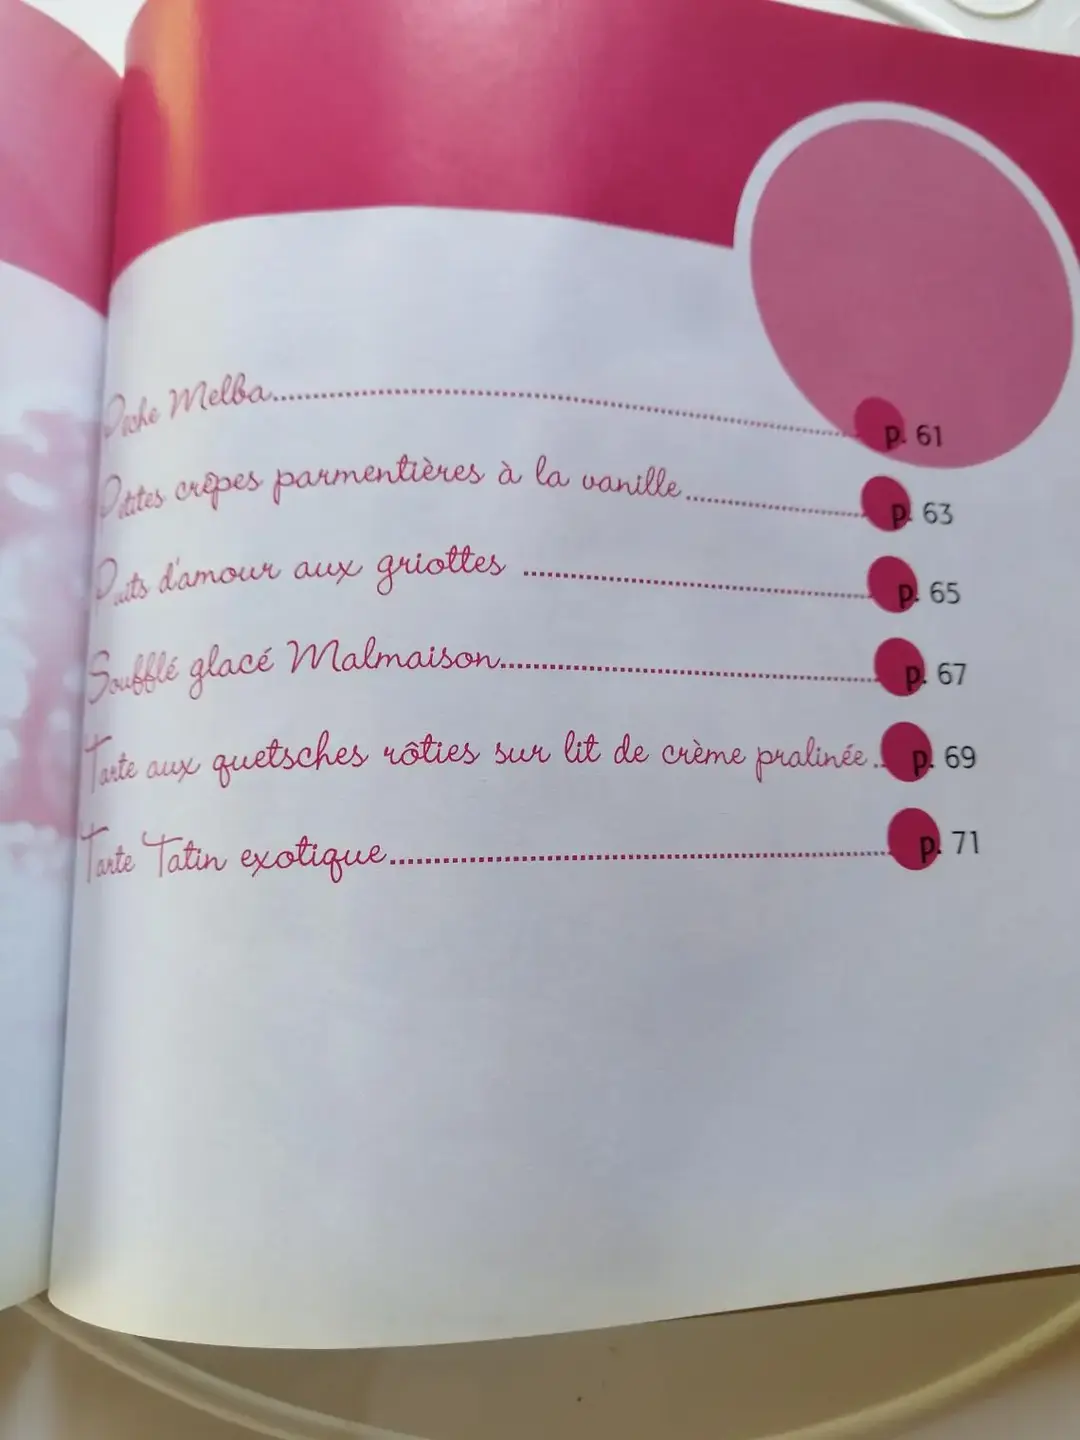 Pêche Melba.......... p. 61
Petites crêpes parmentières à la vanille.......... p. 63
Puits d'amour aux griottes .......... p. 65
Soufflé glacé Malmaison.......... p. 67
Tarte aux quetsches rôties sur lit de crème pralinée.. p. 69
Tarte Tatin exotique.......... p. 71